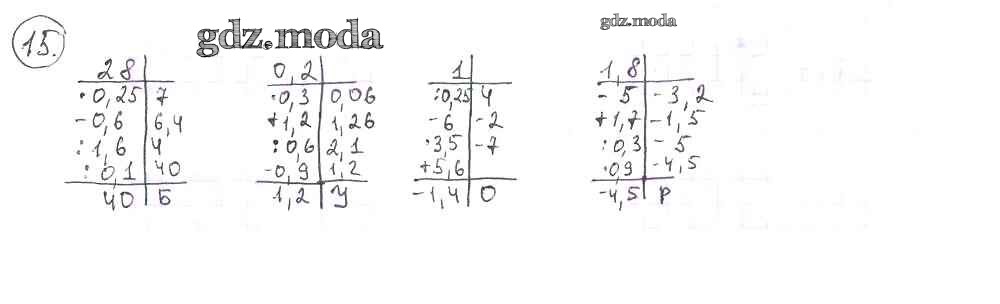 15.
gdz.moda
gdz.moda
28
·0,25 7
-0,6 6,4
:1,6 4
:0,1 40
40 Б
0,2
·0,3 0,06
+1,2 1,26
:0,6 2,1
-0,9 1,2
1,2 У
1
:0,25 4
-6 -2
·3,5 -7
+5,6
-1,4 О
1,8
-5 -3,2
+1,7 -1,5
:0,3 -5
·0,9 -4,5
-4,5 Р